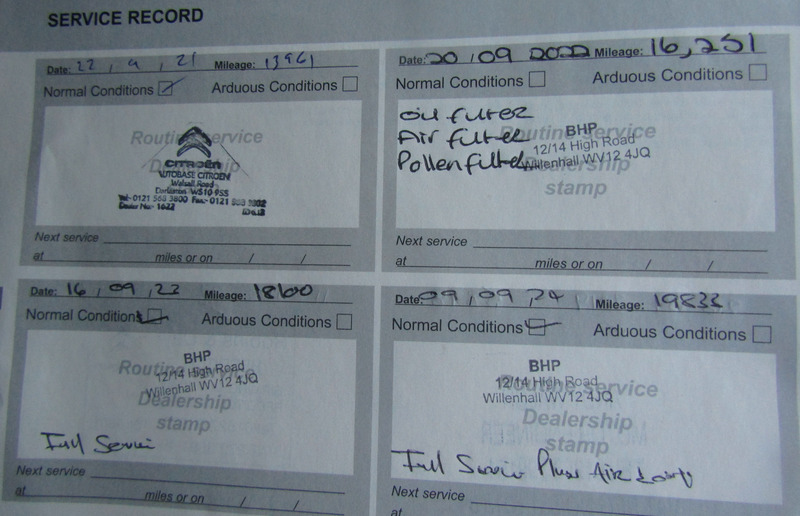 SERVICE RECORD
Date: 22 , 9 , 21 Mileage: 13961
Normal Conditions Arduous Conditions
Routine service
Dealership
CITROËN
AUTOBASE CITROEN
Walsall Road
Darlaston WS10 9SS
Tel:- 0121 568 3800 Fax:- 0121 568
Dealer No:- 1622
Next service
at miles or on / /
Date: 20 , 09 2022 Mileage: 16,251
Normal Conditions Arduous Conditions
Oil filter
Air filter
Pollen filter
Routine service
Dealership
stamp
BHP
12/14 High Road
Willenhall WV12 4JQ
Next service
at miles or on / /
Date: 16 , 09 , 23 Mileage: 18100
Normal Conditions Arduous Conditions
BHP
12/14 High Road
Willenhall WV12 4JQ
Routine service
Dealership
stamp
Full Service
Next service
at miles or on / /
Date: 09 , 09 , 24 Mileage: 19833
Normal Conditions Arduous Conditions
BHP
12/14 High Road
Willenhall WV12 4JQ
Routine service
Dealership
stamp
Full Service Plus Air
Next service
at